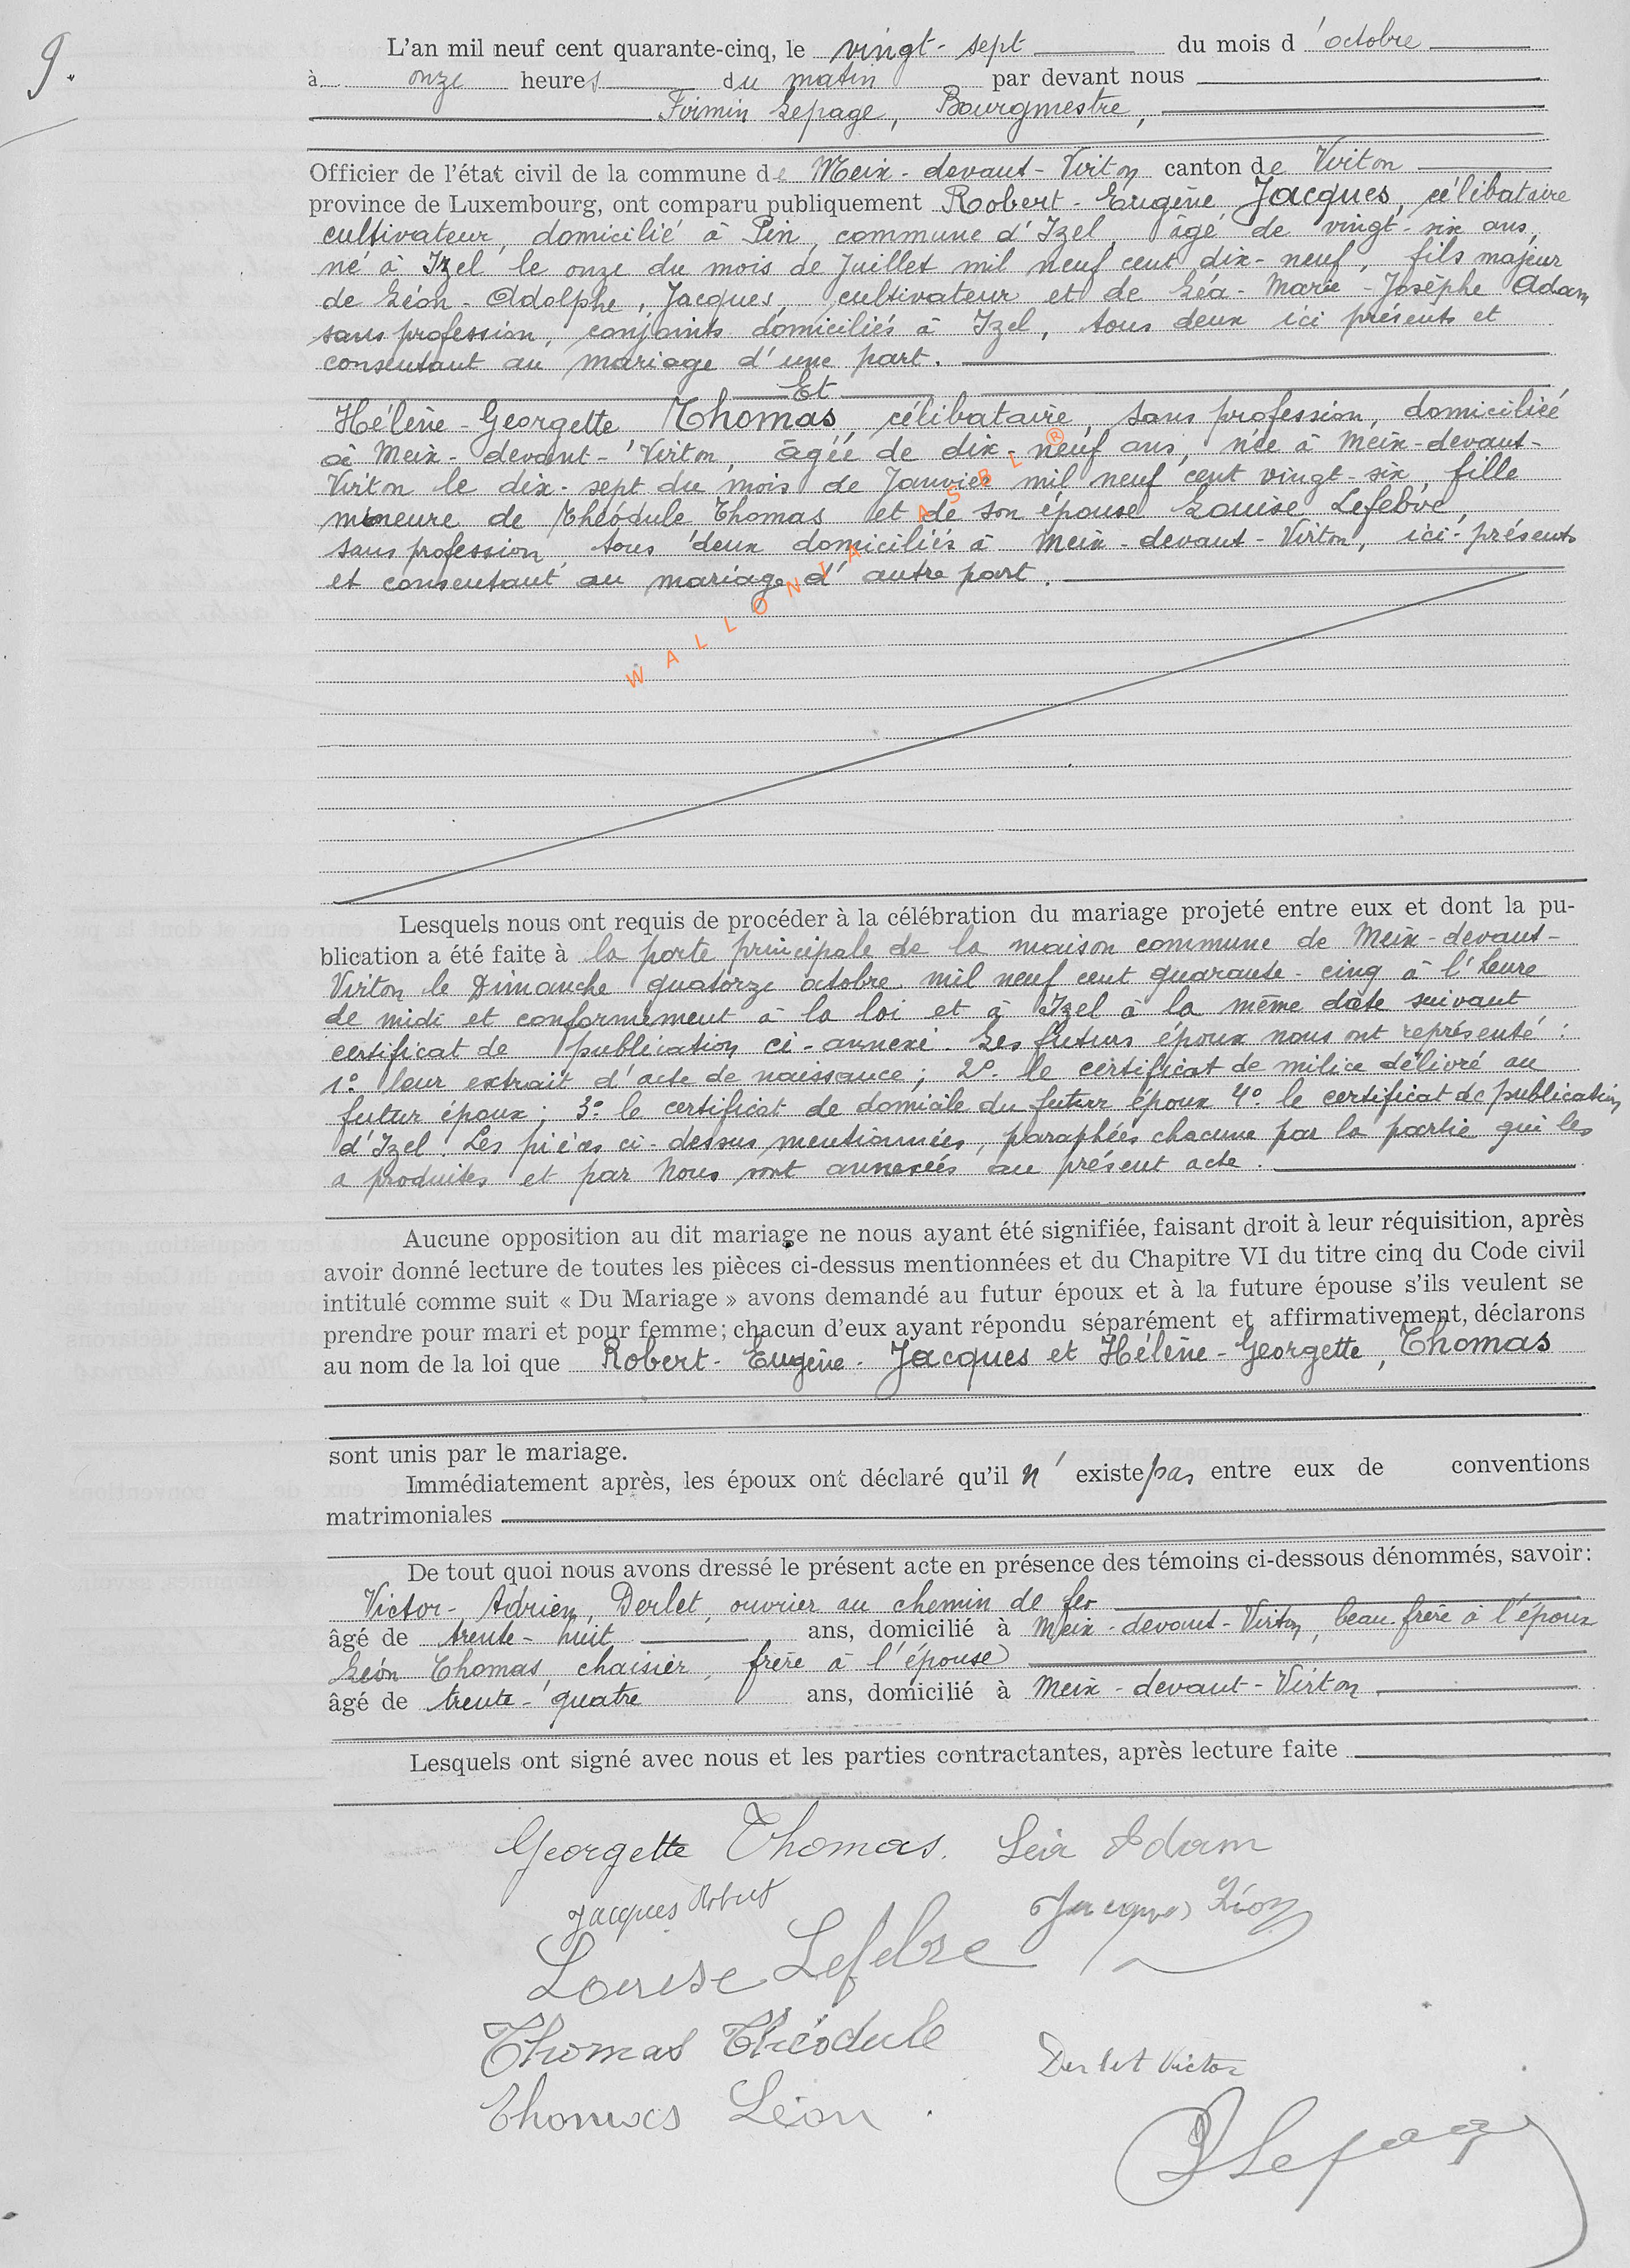 9.
L'an mil neuf cent quarante-cinq, le vingt-sept du mois d'octobre
à onze heures du matin par devant nous
Firmin Lepage, Bourgmestre,
Officier de l'état civil de la commune de Meix-devant-Virton canton de Virton
province de Luxembourg, ont comparu publiquement Robert-Eugène Jacques, célibataire
cultivateur, domicilié à Pin, commune d'Izel, âgé de vingt-six ans,
né à Izel le onze du mois de Juillet mil neuf cent dix-neuf, fils majeur
de Léon-Adolphe, Jacques, cultivateur et de Léa-Marie-Josèphe Adam
sans profession, conjoints domiciliés à Izel, tous deux ici présents et
consentant au mariage d'une part.
Et
Hélène-Georgette Thomas, célibataire, sans profession, domiciliée
à Meix-devant-Virton, âgée de dix-neuf ans, née à Meix-devant-
Virton le dix-sept du mois de Janvier mil neuf cent vingt-six, fille
mineure de Théodule Thomas et de son épouse Louise Lefèbvre,
sans profession, tous deux domiciliés à Meix-devant-Virton, ici-présents
et consentant au mariage d'autre part.
WALLONIA ASBL ®
Lesquels nous ont requis de procéder à la célébration du mariage projeté entre eux et dont la pu-
blication a été faite à la porte principale de la maison commune de Meix-devant-
Virton le Dimanche quatorze octobre mil neuf cent quarante-cinq à l'heure
de midi et conformément à la loi et à Izel à la même date suivant
certificat de publication ci-annexé. Les futurs époux nous ont représenté :
1° leur extrait d'acte de naissance ; 2° le certificat de milice délivré au
futur époux ; 3° le certificat de domicile du futur époux 4° le certificat de publication
d'Izel. Les pièces ci-dessus mentionnées, paraphées chacune par la partie qui les
a produites et par Nous sont annexées au présent acte.
Aucune opposition au dit mariage ne nous ayant été signifiée, faisant droit à leur réquisition, après
avoir donné lecture de toutes les pièces ci-dessus mentionnées et du Chapitre VI du titre cinq du Code civil
intitulé comme suit « Du Mariage » avons demandé au futur époux et à la future épouse s'ils veulent se
prendre pour mari et pour femme; chacun d'eux ayant répondu séparément et affirmativement, déclarons
au nom de la loi que Robert-Eugène-Jacques et Hélène-Georgette, Thomas
sont unis par le mariage.
Immédiatement après, les époux ont déclaré qu'il n'existe pas entre eux de conventions
matrimoniales
De tout quoi nous avons dressé le présent acte en présence des témoins ci-dessous dénommés, savoir:
Victor-Adrien, Derlet, ouvrier au chemin de fer
âgé de trente-huit ans, domicilié à Meix-devant-Virton, beau-frère à l'époux
Léon Thomas, chaisier, frère à l'épouse
âgé de trente-quatre ans, domicilié à Meix-devant-Virton
Lesquels ont signé avec nous et les parties contractantes, après lecture faite
Georgette Thomas. Léa Adam
Jacques Robert Jacques Léon
Louise Lefebre
Thomas Théodule
Derlet Victor
Thomas Léon
Lepage